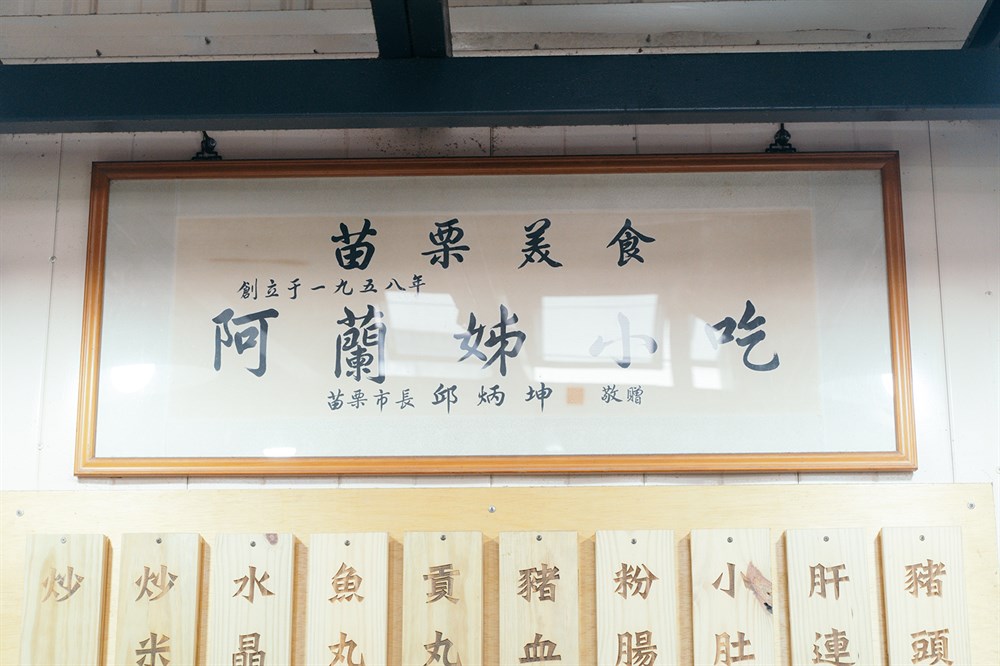 苗栗美食
創立于一九五八年
阿蘭姊小吃
苗栗市長 邱炳坤 敬贈
炒
炒米
水晶
魚丸
貢丸
豬血
粉腸
小肚
肝連
豬頭